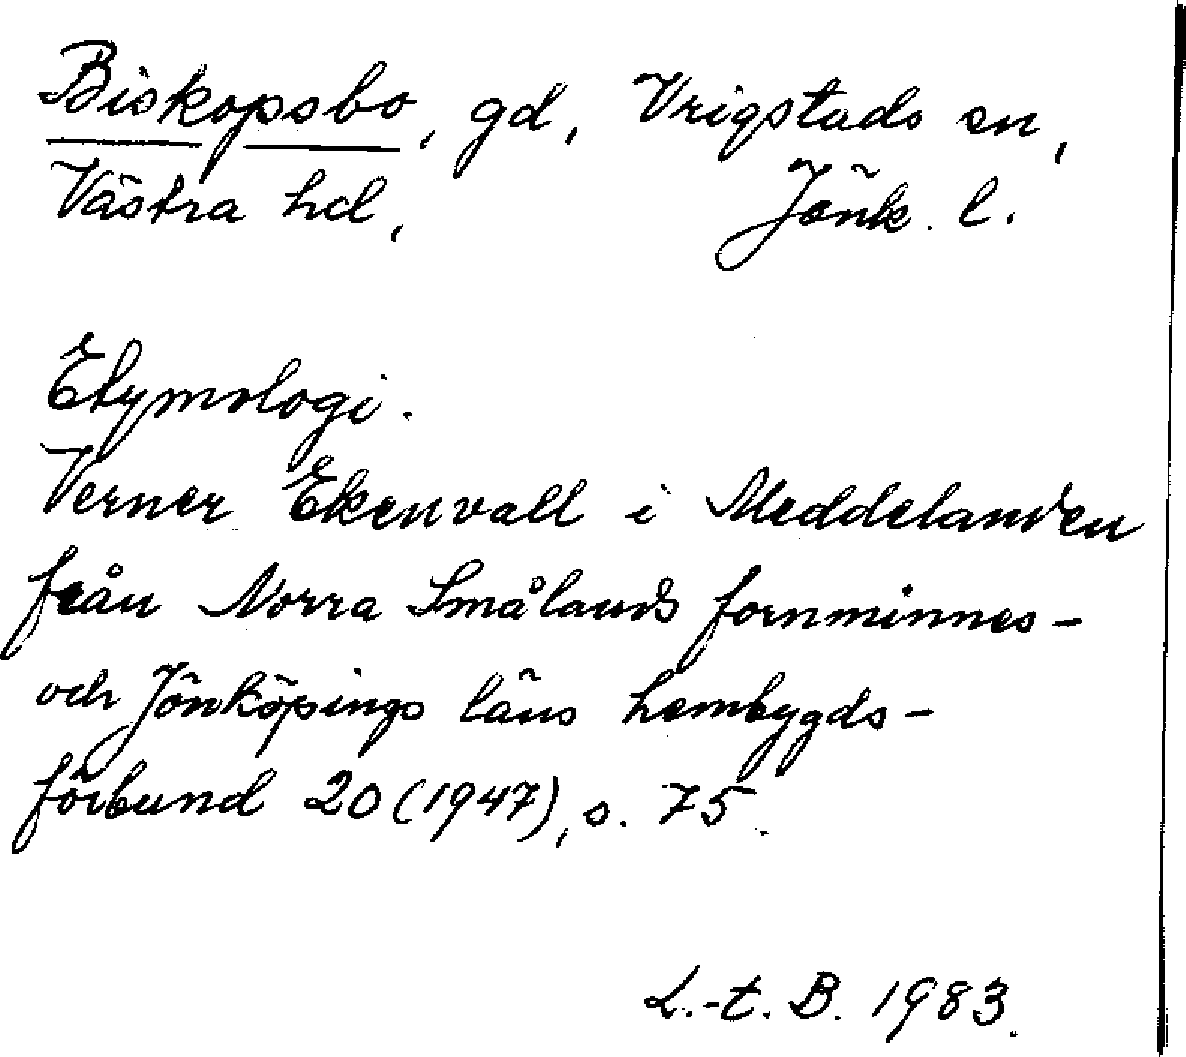 Biskopsbo, gd, Vrigstads sn,
Västra hd, Jönk. l.
Etymologi.
Verner Ekenvall i Meddelanden
från Norra Smålands fornminnes-
och Jönköpings läns hembygds-
förbund 20 (1947), s. 75.
L.-t. B. 1983.